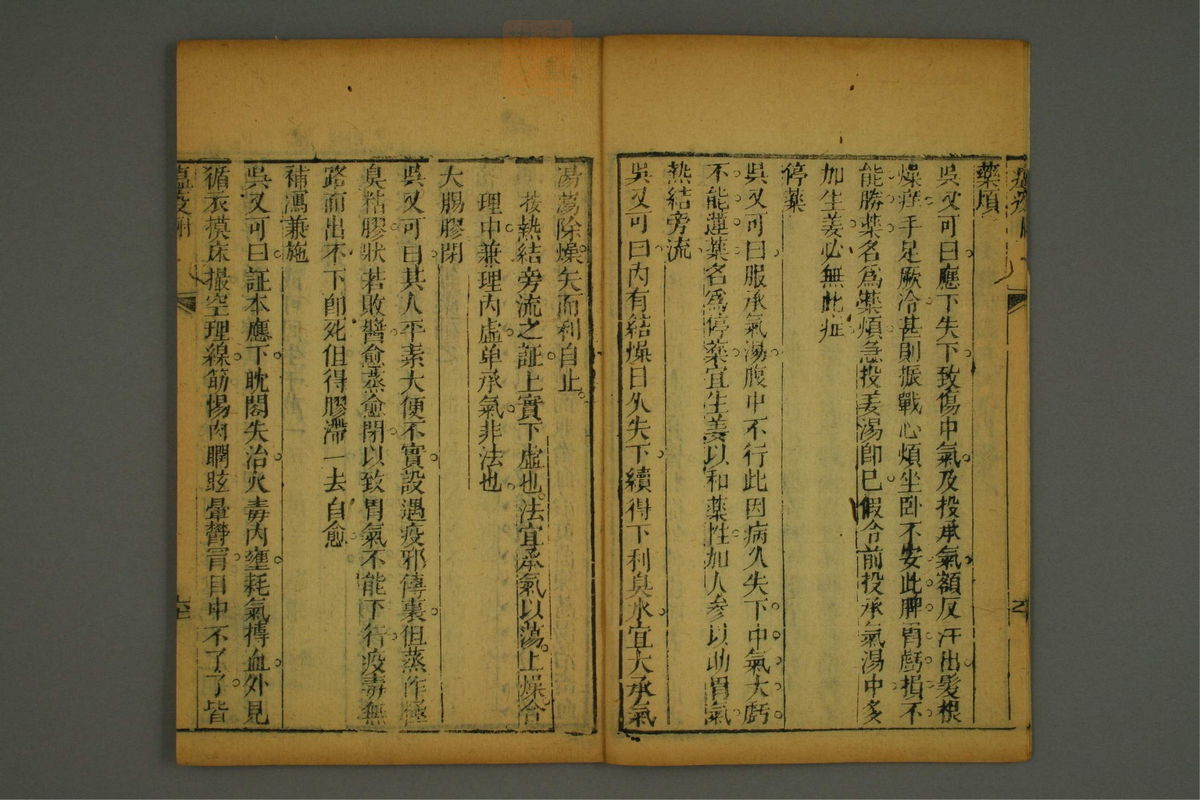 藥煩
吳又可曰應下失下致傷中氣及投承氣額反汗出髮根
燥痒手足厥冷甚則振戰心煩坐臥不安此脾胃虧損不
能勝藥名為藥煩急投姜湯卽已假令前投承氣湯中多
加生姜必無此症
停藥
吳又可曰服承氣湯腹中不行此因病久失下中氣大虧
不能運藥名為停藥宜生姜以和藥性加人參以助胃氣
熱結旁流
吳又可曰內有結燥日久失下續得下利臭水宜大承氣
湯蕩除燥矢而利自止
按熱結旁流之証上實下虛也法宜承氣以蕩上燥合
理中兼理內虛单承氣非法也
大腸膠閉
吳又可曰其人平素大便不實設遇疫邪傳裏但蒸作極
臭粘膠狀若敗醬愈蒸愈閉以致胃氣不能下行疫毒無
路而出不下卽死但得膠滯一去自愈
補瀉兼施
吳又可曰証本應下躭閣失治火毒內壅耗氣搏血外見
循衣摸床撮空理線筋惕肉瞤眩暈鬱冒目中不了了皆